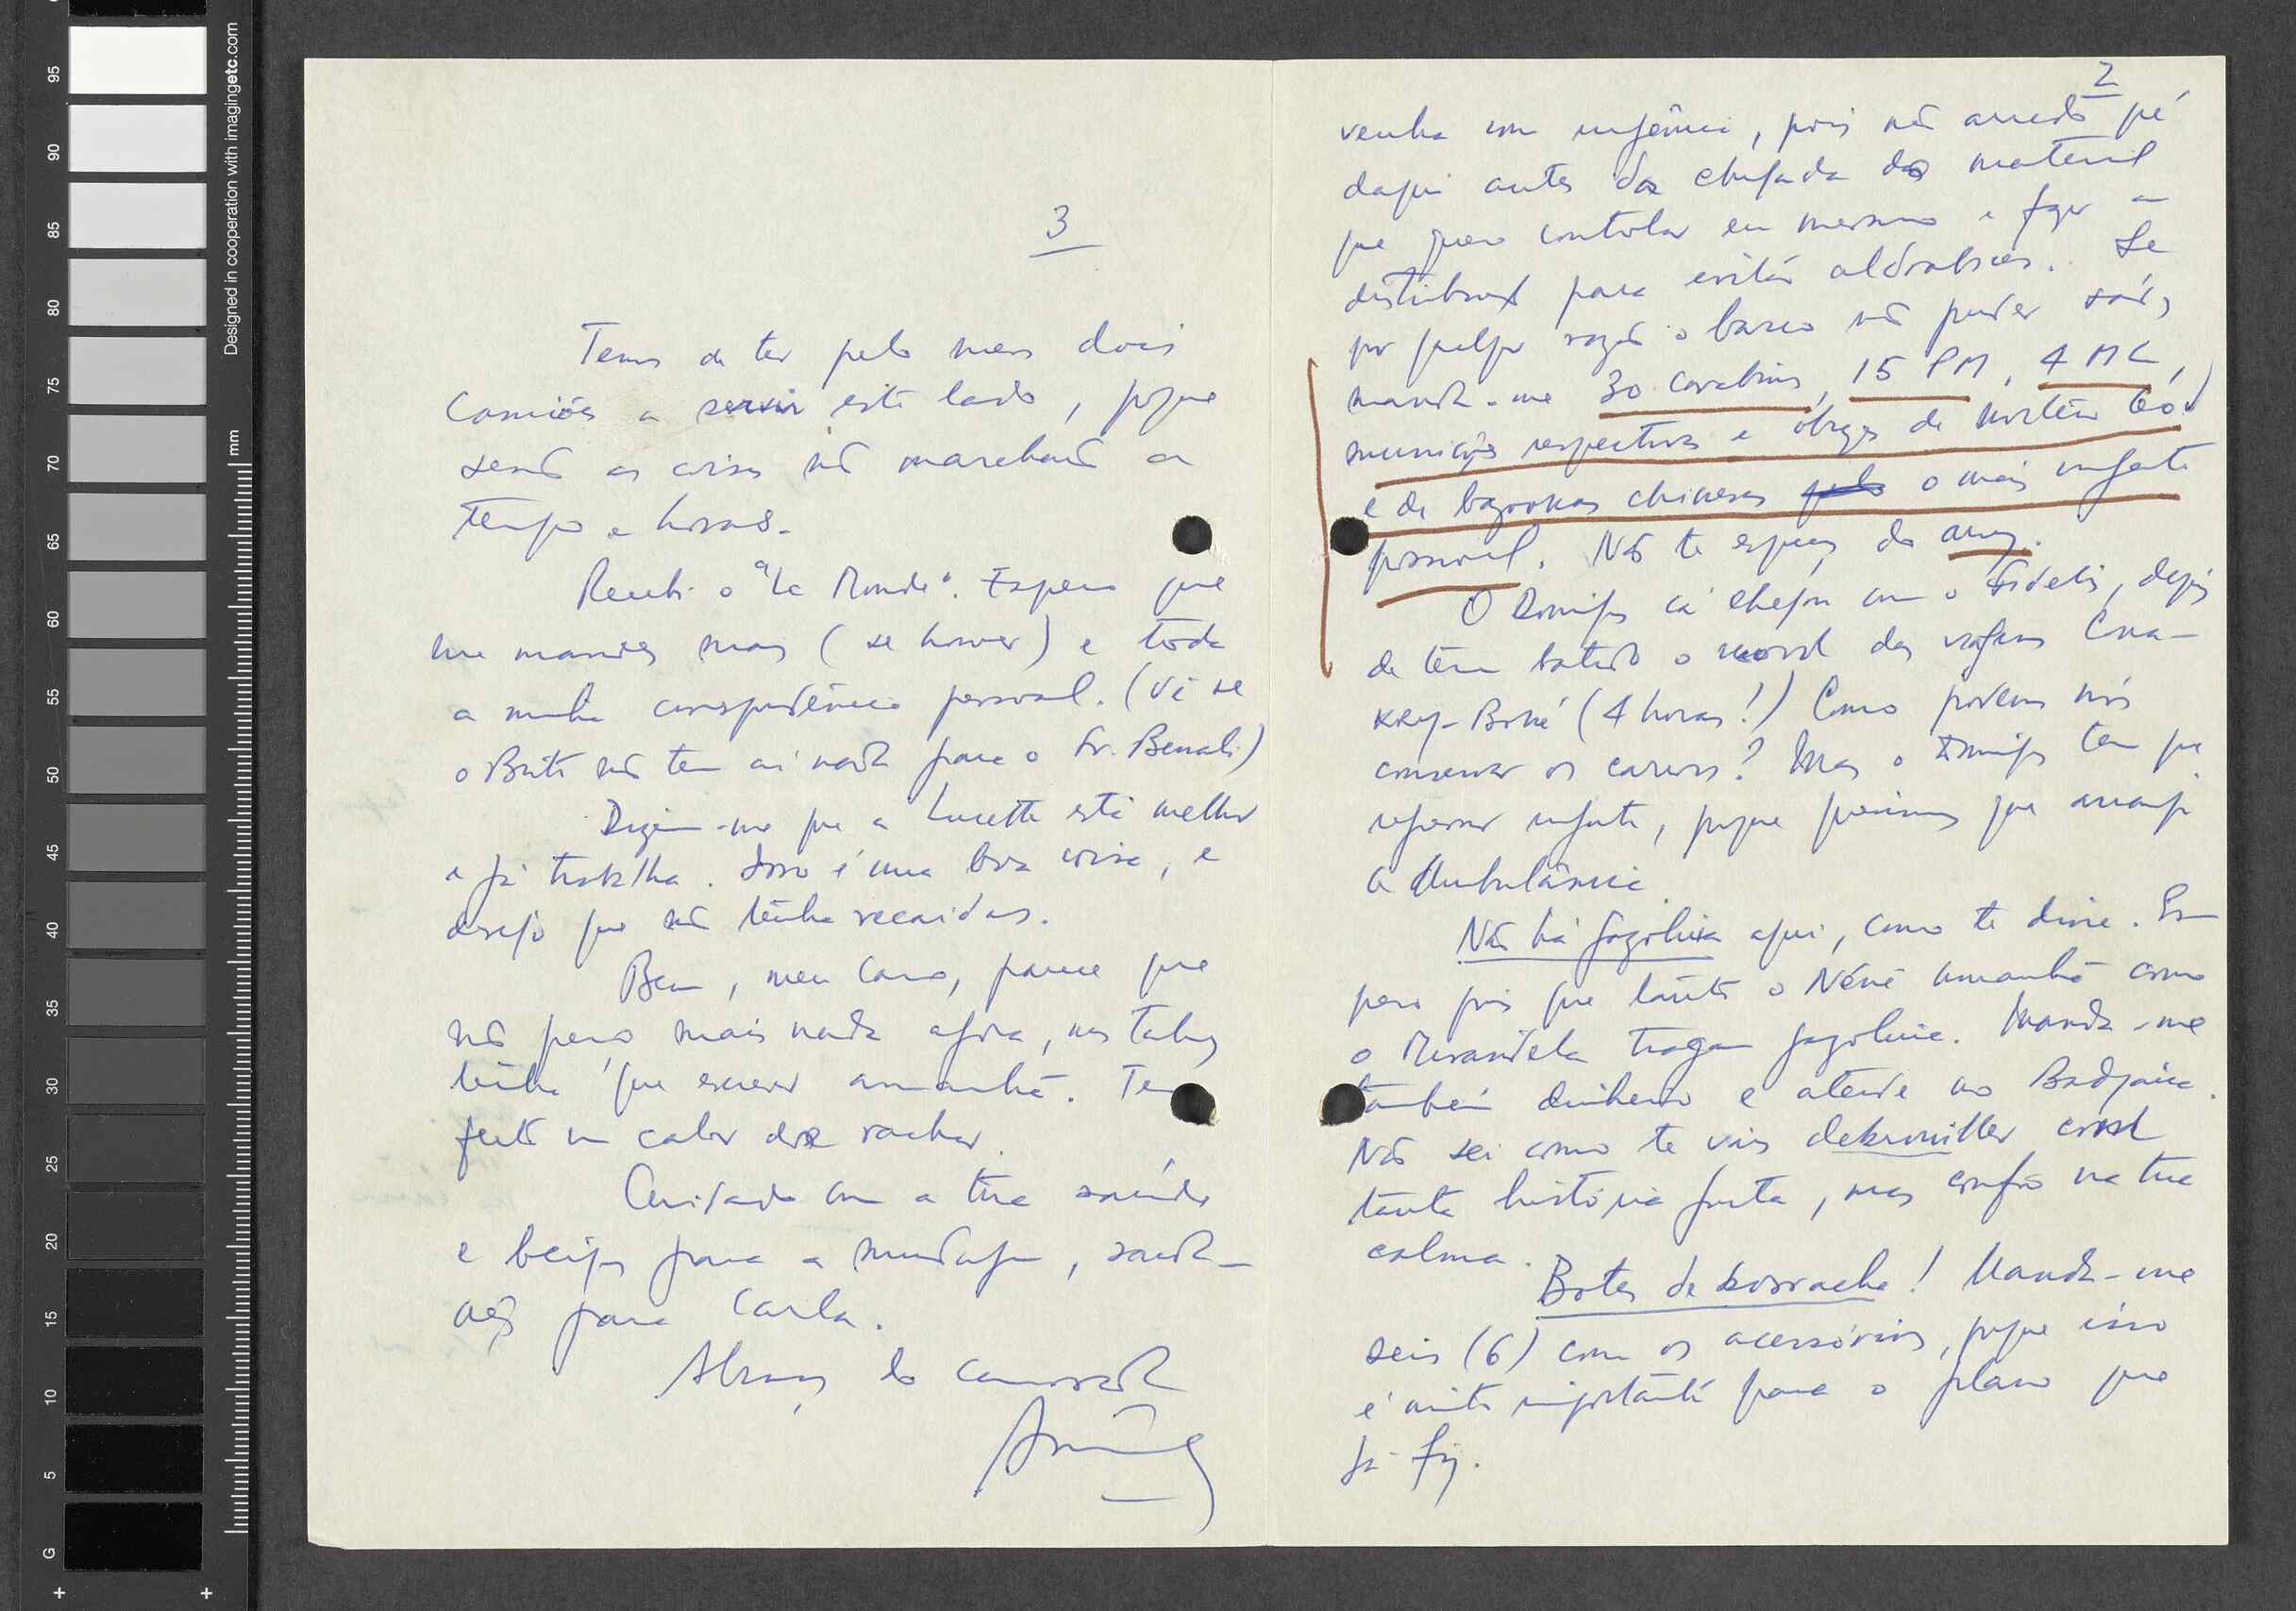 Designed in cooperation with imagingetc.com
mm
95
90
85
80
75
70
65
60
55
50
45
40
35
30
25
20
15
10
5
G
3
Temos de ter pelo menos dois
camiões a servir este lado, porque
senão as coisas não marcharão a
tempo e horas.
Recebi o "Le Monde". Espero que
me mandes mais (se houver) e toda
a minha correspondência pessoal. (Vê se
o Brito não tem aí nada para o Sr. Benali)
Dizem-me que a Lucette está melhor
e já trabalha. Isso é uma boa coisa, e
desejo que não tenha recaídas.
Bem, meu caro, parece que
não peço mais nada agora, mas talvez
tenha que escrever amanhã. Tem
feito um calor de rachar.
Cuidado com a tua saúde
e beijos para a , saud-
ações para Carla.
Abraços do camarada
2
venha com urgência, pois não arredo pé
daqui antes da chegada do material
que quero controlar eu mesmo e fazer a
distribuição para evitar aldrabices. Se
por qualquer razão o barco não puder sair,
manda-me 30 carabinas, 15 PM, 4 ML,
munições respectivas e obuzes de mortero 60
e de bazookas chinesas pelo o mais urgente
possível. Não te esqueças do arroz.
O Domingos cá chegou com o Fidelis, depois
de ter batido o record das viagens Cona-
kry-Boké (4 horas!) Como podemos nós
conservar os carros? Mas o Domingos tem que
regressar urgente, porque precisamos que arranje
a Ambulância.
Não há gazolina aqui, como te disse. Es-
pero pois que tanto o Néné amanhã como
o Mirandela tragam gazolina. Manda-me
também dinheiro e atende ao Badjana.
Não sei como te vais debrouiller com
tanta história junta, mas confio na tua
calma.
Botes de borracha! Manda-me
seis (6) com os acessórios, porque isso
é muito importante para o plano que
já fiz.